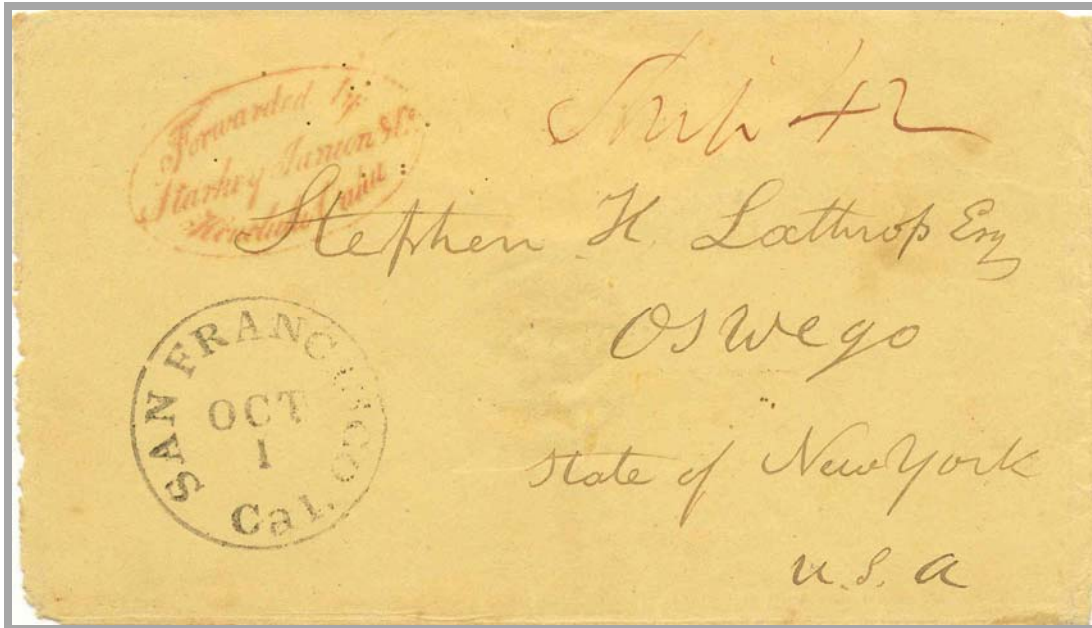 Forwarded by
Starkey Janion & Co.
Honolulu Oahu
Ship 42
Stephen H. Lathrop Esq
Oswego
State of New York
U.S.A
SAN FRANCISCO
OCT
1
Cal.